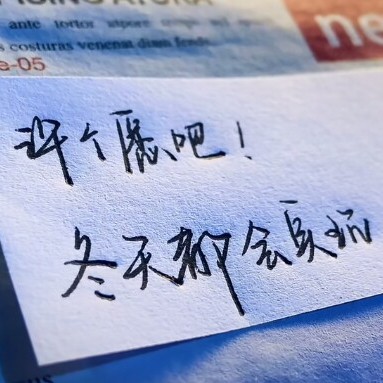 ante tortor
costuras venenat diam
e-05
ne
许个愿吧！
冬天都会实现